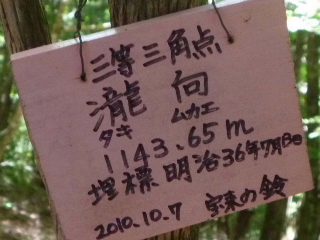 三等三角点
瀧 向
タキ ムカエ
1143.65m
埋標 明治36年7月13日
2010.10.7 宗末の鈴